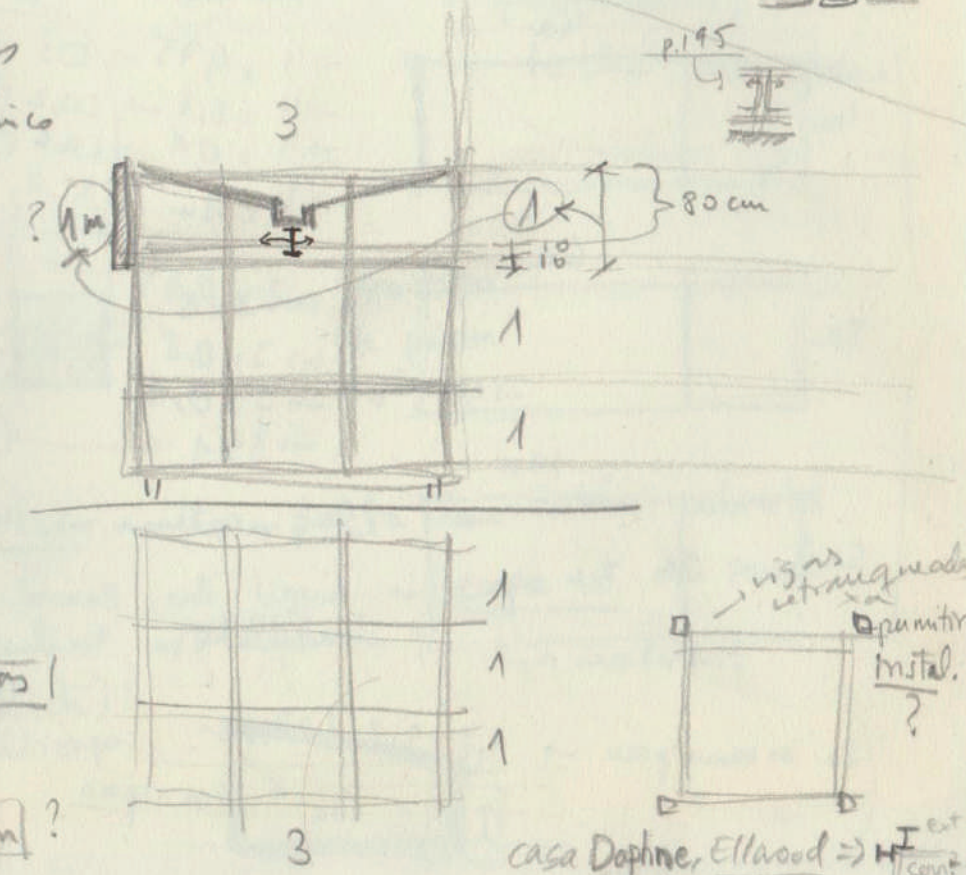 p.195
3
? 1m
1
80 cm
10
1
1
vigas
retranqueadas
xa
pumitir
instal.
?
1
1
1
?
3
casa Daphne, Ellwood => H I ext